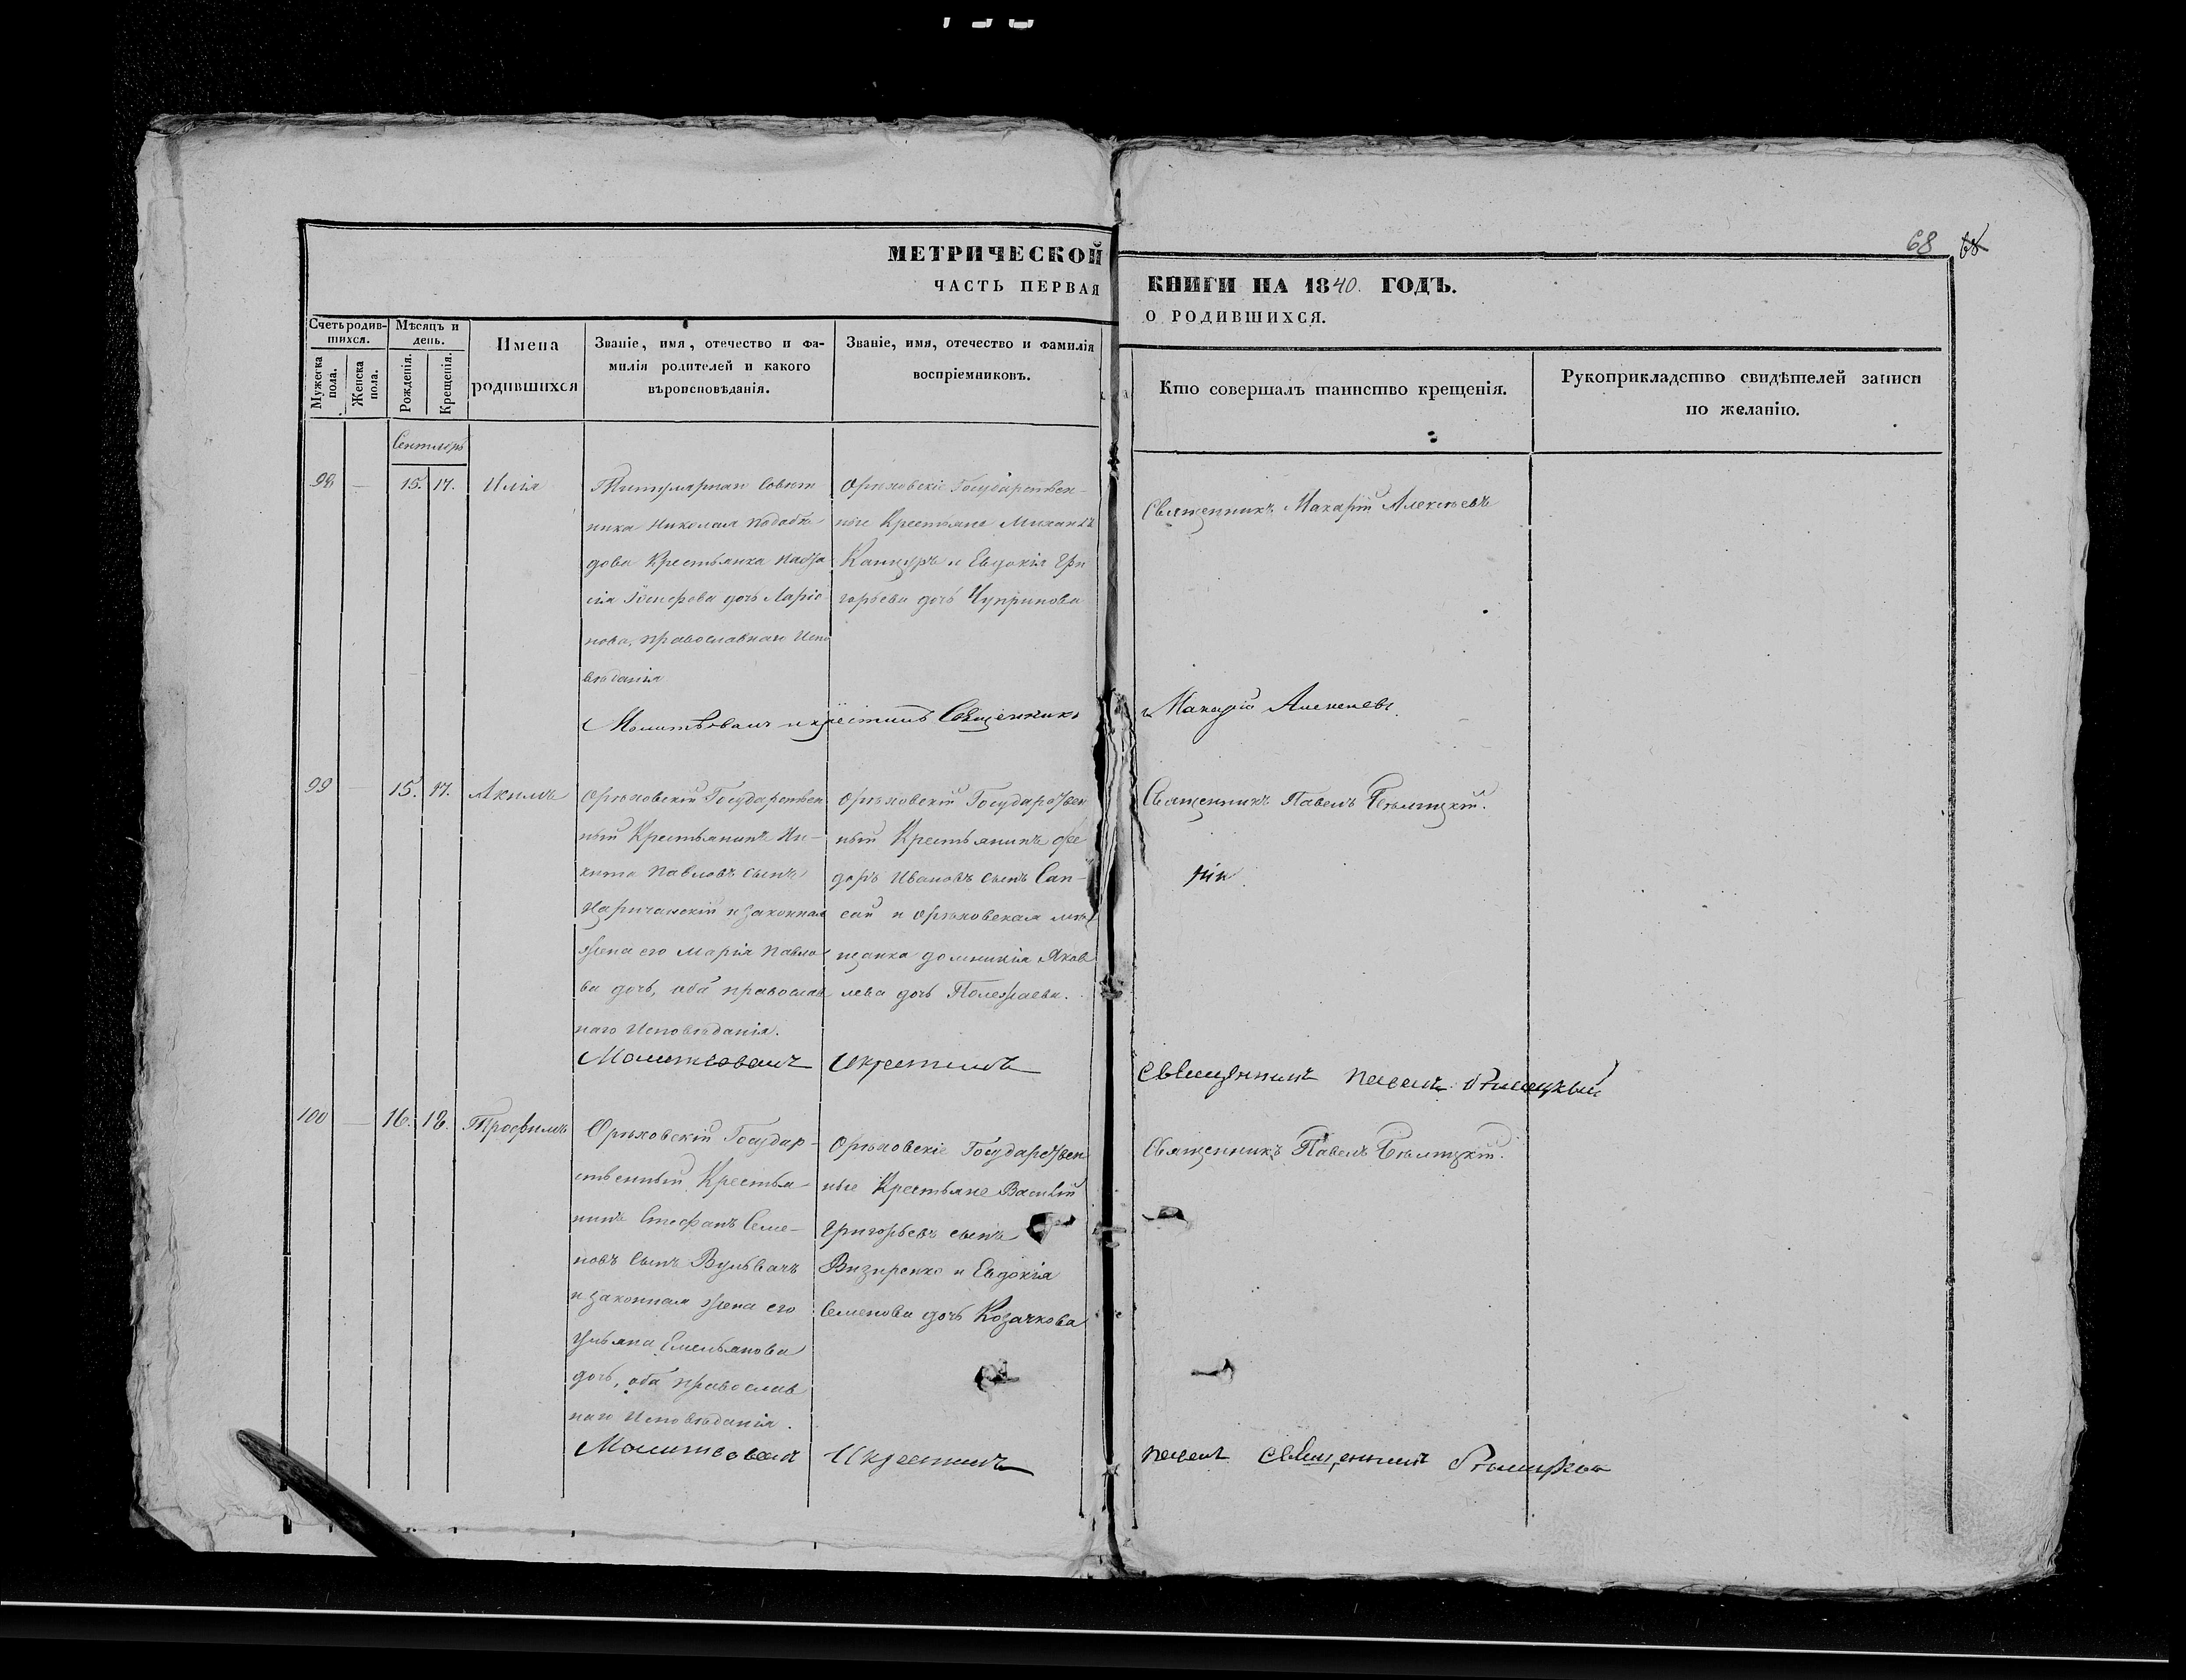 68 68
МЕТРИЧЕСКОЙ
ЧАСТЬ ПЕРВАЯ
КНИГИ НА 1840. ГОДЪ.
О РОДИВШИХСЯ.
Счетъ родившихся.
Мужеска пола.
Женска пола.
Мѣсяцъ и день.
Рожденія.
Крещенія.
Имена родившихся
Званіе, имя, отечество и фа-
милія родителей и какого
вѣроисповѣданія.
Званіе, имя, отечество и фамилія
воспріемниковъ.
Кто совершалъ таинство крещенія.
Рукоприкладство свидѣтелей записи
по желанію.
Сентябрь
98 — 15. 17. Илія
Титулярнаго Совѣт
ника Николая
дова Крестьянка Наста
сія Іосифова дочь Ларіо
нова, православнаго Испо
вѣданія
Орѣховскіе Государствен-
ные Крестьяне Михаилъ
и Евдокія Гри
горьева дочь Чупринова
Священникъ Макарій Алексѣевъ
Молитвовалъ и крестилъ Священникъ
Макарій Алексѣевъ
99 — 15. 17. Акимъ
Орѣховскій Государствен
ный Крестьянинъ Ни-
кита Павловъ сынъ
Царичанскій и законная
жена его Марія Павло
ва дочь, оба православ
наго Исповѣданія.
Орѣховскій Государствен
ный Крестьянинъ Фе
доръ Ивановъ сынъ Сап-
сай и Орѣховская мѣ
щанка Домникія Яков
лева дочь Полежаева.
Священникъ Павелъ Бѣлицкій.
Молитвовалъ Икрестилъ
Священникъ Павелъ Бѣлицкый
100 — 16. 18. Трофимъ
Орѣховскій Государ-
ственный Крестья-
нинъ Стефанъ Семе-
новъ сынъ Вульвачъ
и законная жена его
Ульяна Емельянова
дочь, оба православ
наго Исповѣданія.
Орѣховскіе Государствен
ные Крестьяне Василій
Григорьевъ сынъ
Визиренко и Евдокія
Семенова дочь Козачкова
Священникъ Павелъ Бѣлицкій.
Молитвовалъ Икрестилъ
Павелъ Священникъ